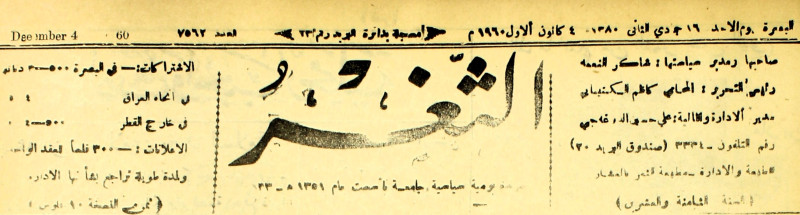 البصرة يوم الاحد ١٦ جمادي الثاني ١٣٨٠ - ٤ كانون الاول ١٩٦٠ م
مسجلة بدائرة البريد رقم ٢٣
العدد ٧٥٦٢
December 4 60
صاحبها ومدير سياستها: شاكر النعمة
رئيس التحرير: المحامي كاظم
مدير الادارة والمالية: علي
رقم التلفون - ٣٣٣٤ (صندوق البريد ٣٠)
الطبعة والادارة - مطبعة الثغر بالعشار
(السنة الثامنة والعشرين)
الثغر
يومية سياسية جامعة تأسست عام ١٣٥١ هـ - ١٣٣
الاشتراكات: - في البصرة ٥٠٠ - ٣ دنانير
في انحاء العراق ٤
في خارج القطر ٥٠٠ - ٤
الاعلانات: - ٣٠٠ فلساً للعقد الواحد
ولمدة طويلة تراجع بشأنها الادارة
(ثمن النسخة ١٠ فلوس)